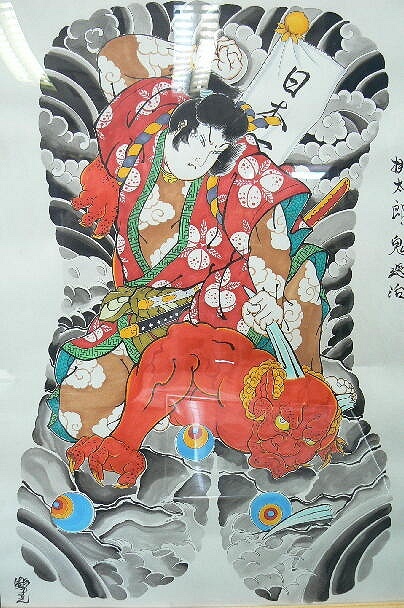 日本
桃太郎 鬼退治